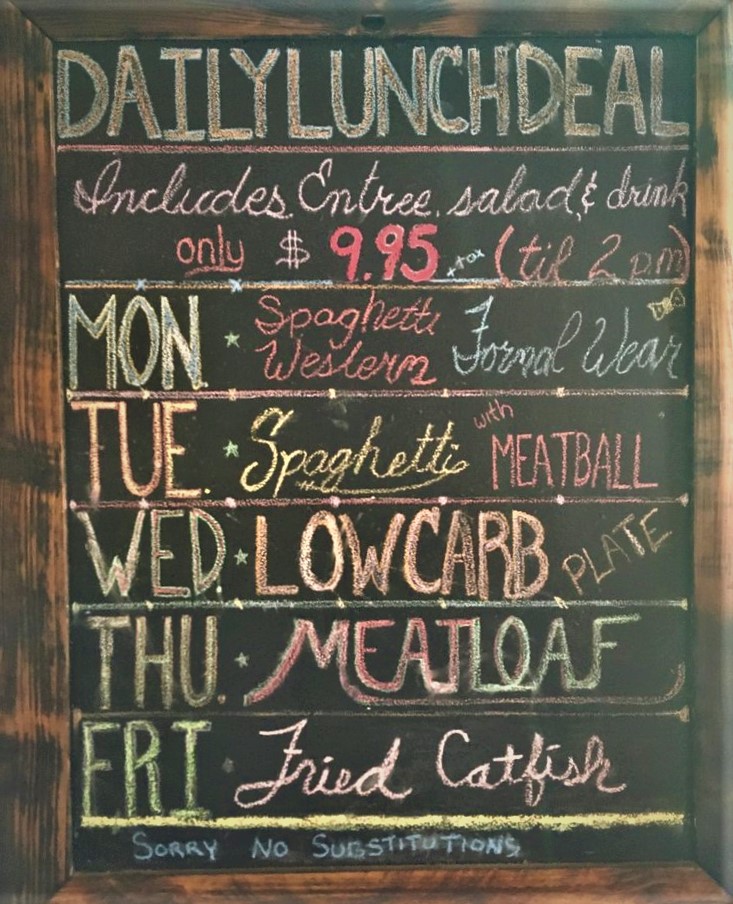 DAILY LUNCH DEAL
Includes Entree, salad, & drink
only $9.95 +tax (til 2 p.m)
MON. Spaghetti Western Formal Wear
TUE. Spaghetti with MEATBALL
WED. LOWCARB PLATE
THU. MEATLOAF
FRI Fried Catfish
SORRY NO SUBSTITUTIONS